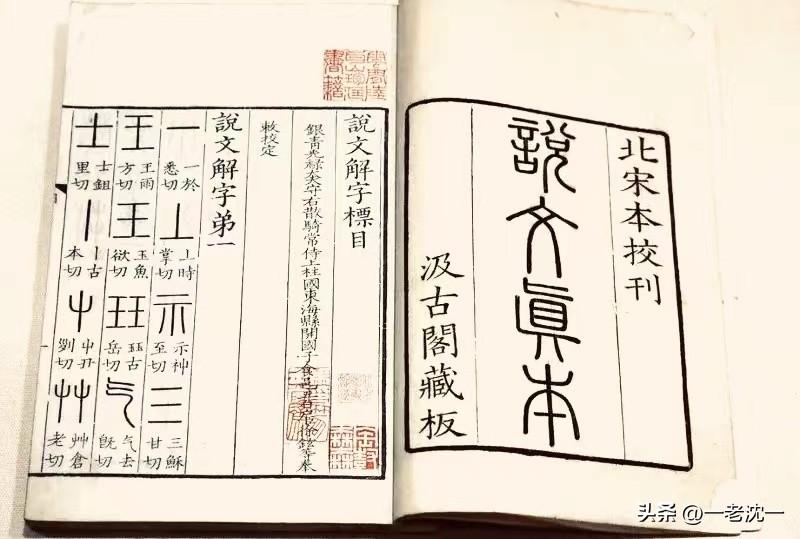 北宋本校刊
說文眞本
汲古閣藏板
說文解字標目
銀青光祿大夫守右散騎常侍上柱國東海縣開國子食邑五百戶臣徐鉉等奉
敕校定
說文解字弟一
一 一於悉切 丄 上時掌切 示 示神至切 三 三穌甘切
王 王雨方切 王 玉魚欲切 玨 玨古岳切 气 气去旣切
士 士鉏里切 丨 丨古本切 屮 屮丑列切 艸 艸倉老切
头条 @一老沈一